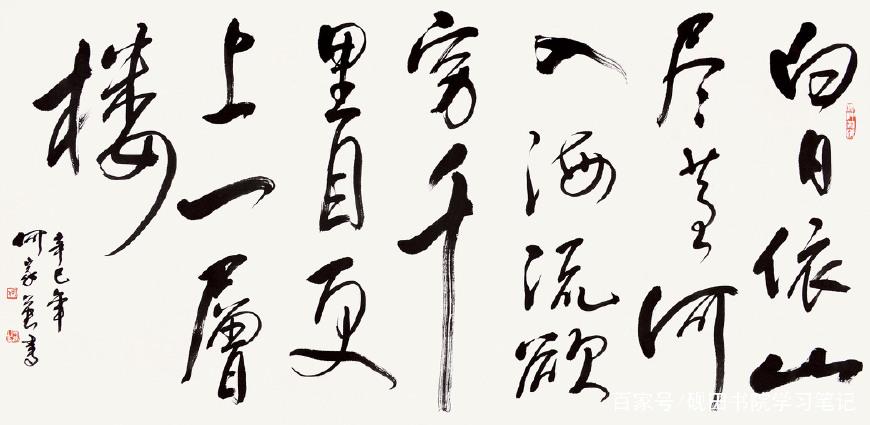 白日依山
尽黄河
入海流欲
穷千
里目更
上一層
楼
辛巳年
何家英書
百家号/砚田书院学习笔记